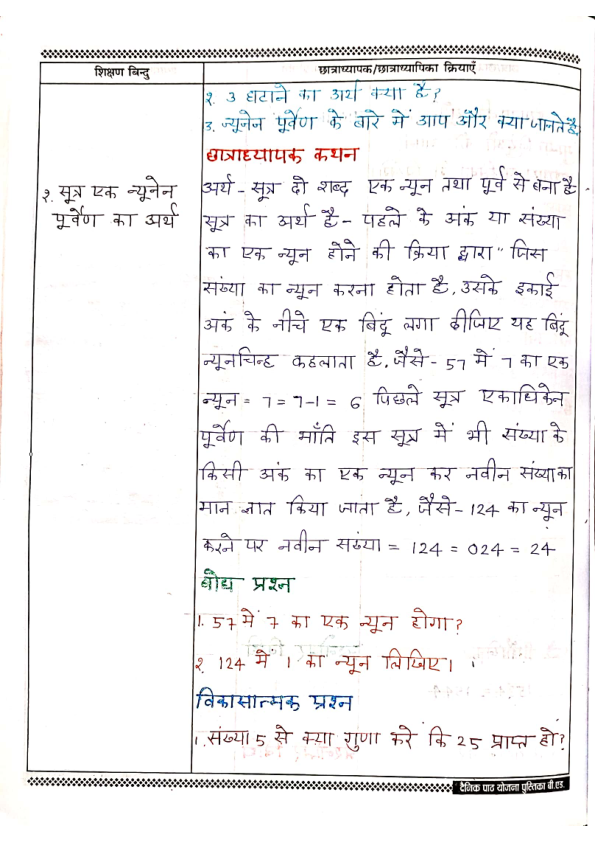 शिक्षण बिन्दु
छात्राध्यापक/छात्राध्यापिका क्रियाएँ
२. 3 घटाने का अर्थ क्या है?
3. न्यूनेन पूर्वेण के बारे में आप और क्या जानते है
छात्राध्यापक कथन
२. सूत्र एक न्यूनेन
पूर्वेण का अर्थ
अर्थ - सूत्र दो शब्द एक न्यून तथा पूर्व से बना है
सूत्र का अर्थ है - पहले के अंक या संख्या
का एक न्यून होने की क्रिया द्वारा " जिस
संख्या का न्यून करना होता है, उसके इकाई
अंक के नीचे एक बिंदू लगा दीजिए यह बिंदू
न्यूनचिन्ह कहलाता है, जैसे - 57 में 7 का एक
न्यून = 7 = 7-1 = 6 पिछले सूत्र एकाधिकेन
पूर्वेण की भाँति इस सूत्र में भी संख्या के
किसी अंक का एक न्यून कर नवीन संख्या का
मान ज्ञात किया जाता है, जैसे - 124 का न्यून
करने पर नवीन संख्या = 124 = 024 = 24
बोध प्रश्न
1. 57 में 7 का एक न्यून होगा?
२. 124 में 1 का न्यून लिखिए।
विकासात्मक प्रश्न
1. संख्या 5 से क्या गुणा करें कि 25 प्राप्त हो?
दैनिक पाठ योजना पुस्तिका बी.एड.